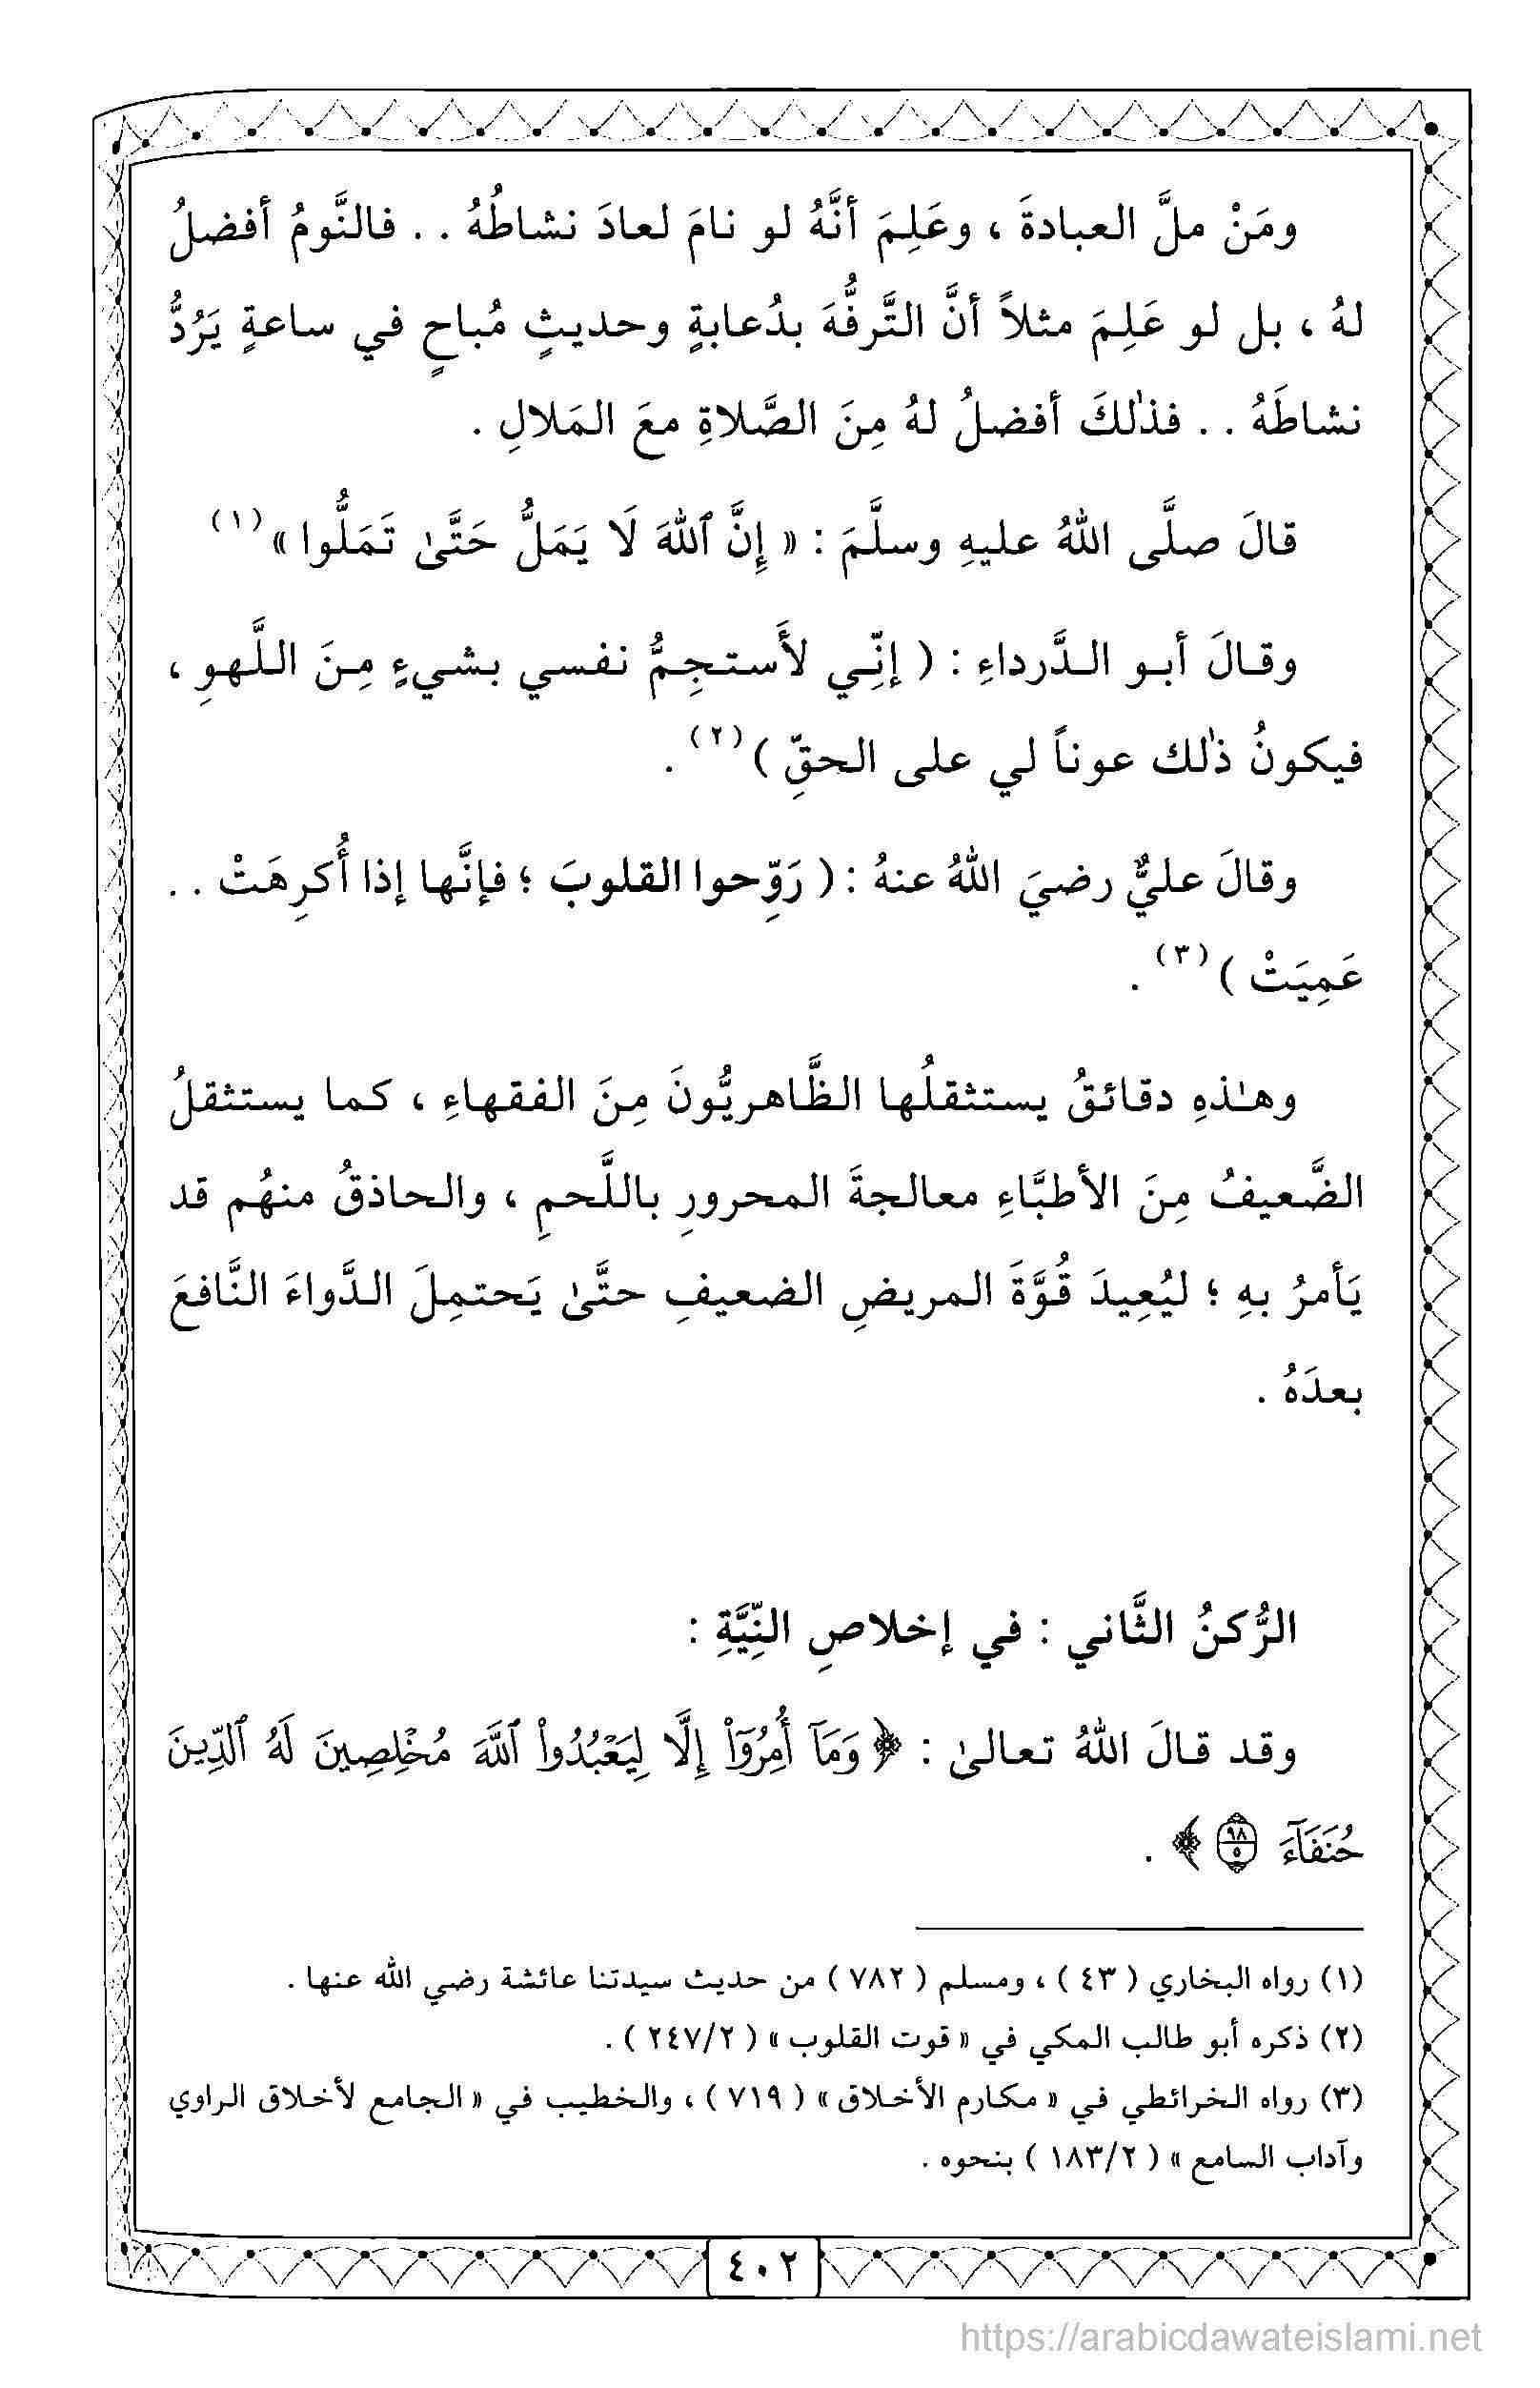 ومَنْ ملَّ العبادةَ ، وعَلِمَ أنَّهُ لو نامَ لعادَ نشاطُهُ . . فالنَّومُ أفضلُ
لهُ ، بل لو عَلِمَ مثلاً أنَّ التَّرفُّهَ بدُعابةٍ وحديثٍ مُباحٍ في ساعةٍ يَرُدُّ
نشاطَهُ . . فذٰلكَ أفضلُ لهُ مِنَ الصَّلاةِ معَ المَلالِ .
قالَ صلَّى اللهُ عليهِ وسلَّمَ : « إِنَّ ٱللهَ لَا يَمَلُّ حَتَّىٰ تَمَلُّوا »(١)
وقالَ أبو الدَّرداءِ : ( إنِّي لأَستجِمُّ نفسي بشيءٍ مِنَ اللَّهوِ ،
فيكونُ ذٰلك عوناً لي على الحقِّ )(٢) .
وقالَ عليٌّ رضيَ اللهُ عنهُ : ( رَوِّحوا القلوبَ ؛ فإنَّها إذا أُكرِهَتْ . .
عَمِيَتْ )(٣) .
وهـٰذهِ دقائقُ يستثقلُها الظَّاهريُّونَ مِنَ الفقهاءِ ، كما يستثقلُ
الضَّعيفُ مِنَ الأطبَّاءِ معالجةَ المحرورِ باللَّحمِ ، والحاذقُ منهُم قد
يَأمرُ بهِ ؛ ليُعِيدَ قُوَّةَ المريضِ الضعيفِ حتَّىٰ يَحتمِلَ الدَّواءَ النَّافعَ
بعدَهُ .
الرُّكنُ الثَّاني : في إخلاصِ النِّيَّةِ :
وقد قالَ اللهُ تعالىٰ : ﴿ وَمَآ أُمِرُوٓاْ إِلَّا لِيَعْبُدُواْ ٱللَّهَ مُخْلِصِينَ لَهُ ٱلدِّينَ
حُنَفَآءَ ٩٨ ٥ ﴾ .
(١) رواه البخاري ( ٤٣ ) ، ومسلم ( ٧٨٢ ) من حديث سيدتنا عائشة رضي الله عنها .
(٢) ذكره أبو طالب المكي في « قوت القلوب » ( ٢٤٧/٢ ) .
(٣) رواه الخرائطي في « مكارم الأخلاق » ( ٧١٩ ) ، والخطيب في « الجامع لأخلاق الراوي
وآداب السامع » ( ١٨٣/٢ ) بنحوه .
٤٠٢
https://arabicdawateislami.net